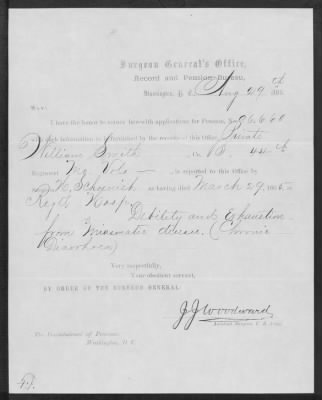 Surgeon General's Office,
Record and Pension Bureau,
Washington, D. C. Aug 29th 186
Sir:
I have the honor to return herewith applications for Pension, No 86660
with such information as is furnished by the records of this Office. Private
William Smith Co. B. 44th
Regiment Vols is reported to this Office by
as having died March 29, 186
Regtl Hosp
Debility and Exhaustion
from Miasmatic disease. (Chronic
Diarrhoea)
Very respectfully,
Your obedient servant,
BY ORDER OF THE SURGEON GENERAL:
J J Woodward
Assistant Surgeon U. S. Army.
The Commissioner of Pensions,
Washington, D. C.